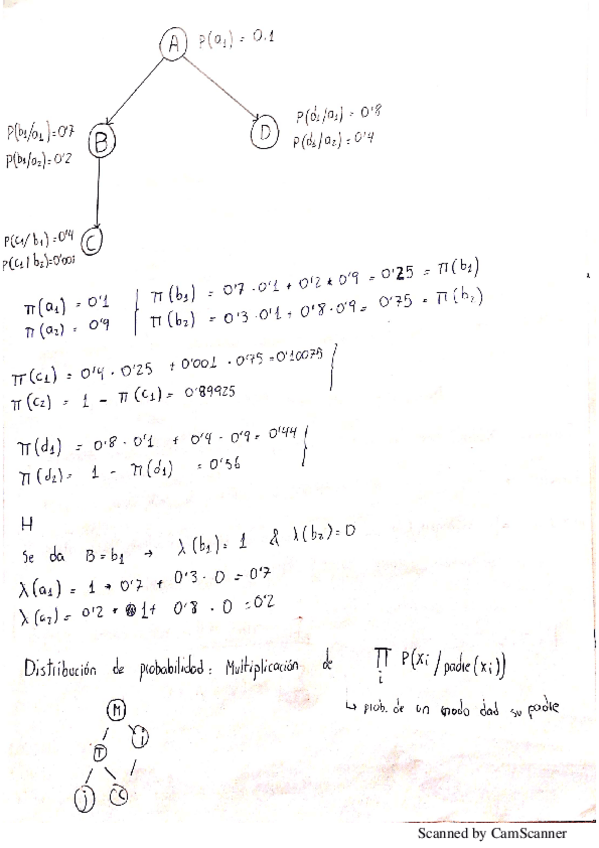 A P(a1) = 0.1
P(b1/a1)=0'7
P(b1/a2)=0'2
B
D
P(d1/a1) = 0'8
P(d1/a2) = 0'4
C
P(c1/b1)=0'4
P(c1/b2)=0'001
π(a1) = 0'1
π(a2) = 0'9
π(b1) = 0'7 · 0'1 + 0'2 * 0'9 = 0'25 = π(b1)
π(b2) = 0'3 · 0'1 + 0'8 · 0'9 = 0'75 = π(b2)
π(c1) = 0'4 · 0'25 + 0'001 · 0'75 = 0'10075
π(c2) = 1 - π(c1) = 0'89925
π(d1) = 0'8 · 0'1 + 0'4 · 0'9 = 0'44
π(d2) = 1 - π(d1) = 0'56
H
Se da B = b1 → λ(b1) = 1 & λ(b2) = 0
λ(a1) = 1 * 0'7 + 0'3 · 0 = 0'7
λ(a2) = 0'2 * 1 + 0'8 · 0 = 0'2
Distribución de probabilidad: Multiplicación de ∏i P(xi/padre(xi))
↳ prob. de un nodo dad su padre
M
T
i
j
C
Scanned by CamScanner